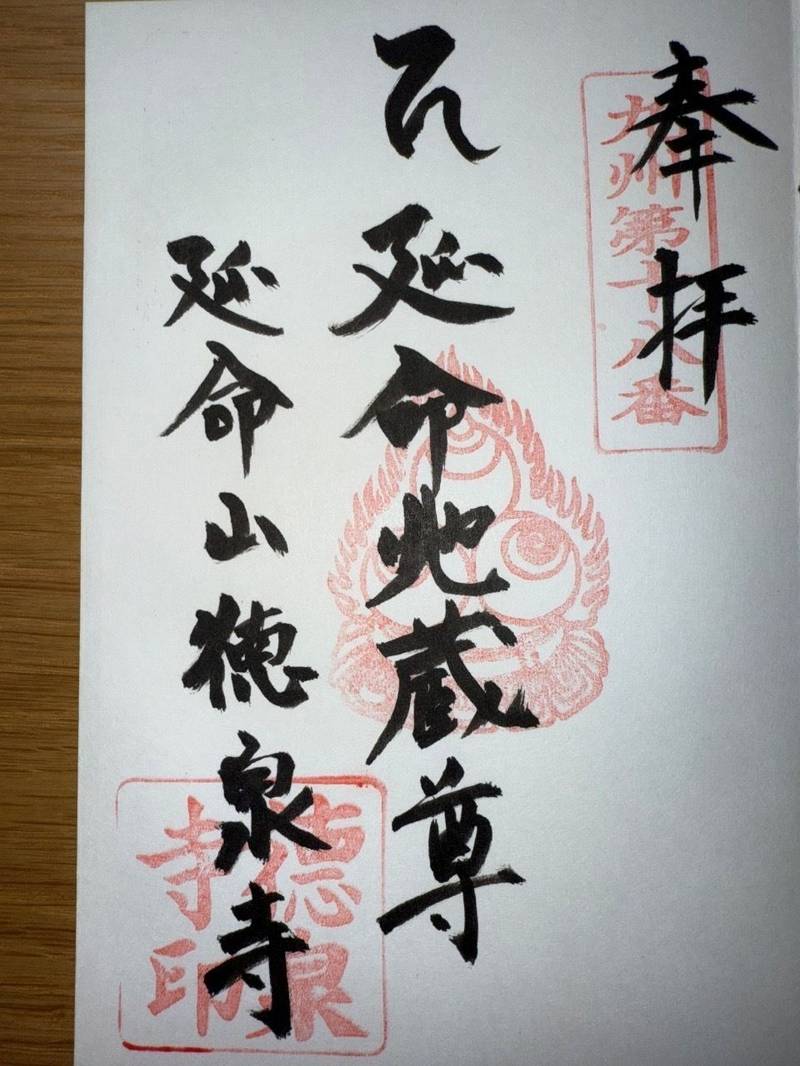 奉拝
九州第十八番
延命地蔵尊
延命山徳泉寺
徳泉寺印